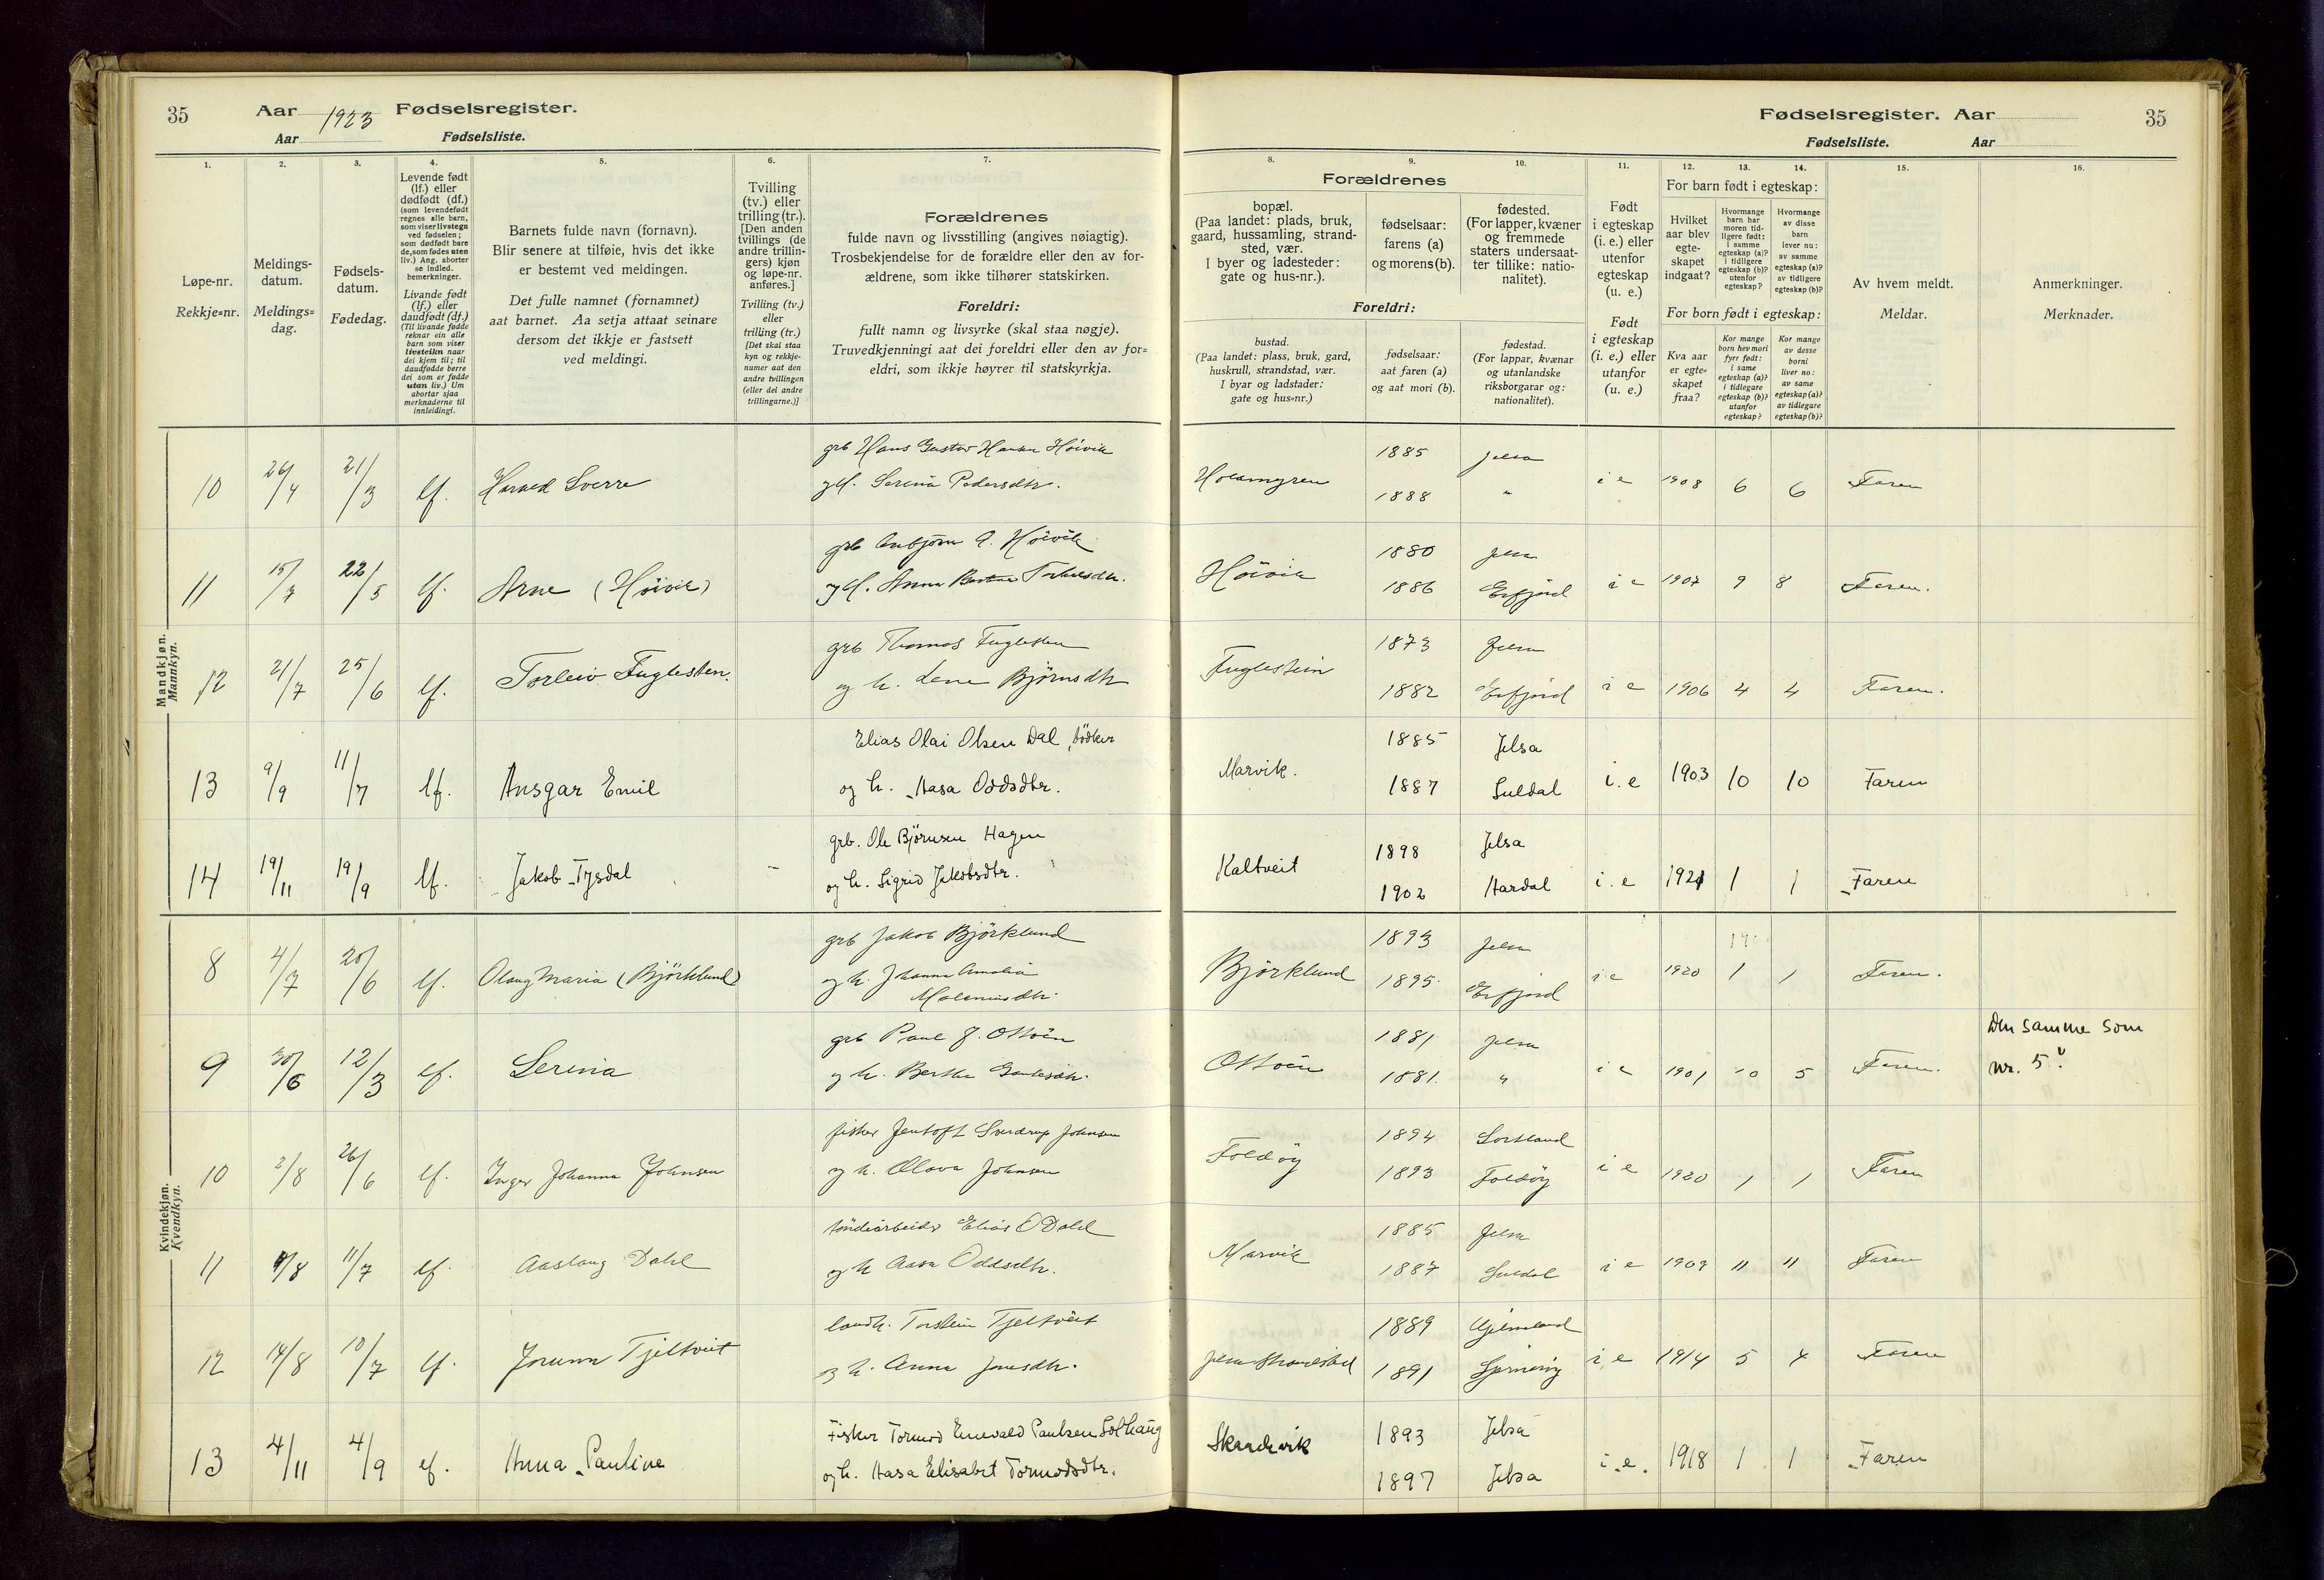 35
Aar 1923 Fødselsregister.
Aar Fødselsliste.
1. 2. 3. 4. 5. 6. 7.
Løpe-nr.
Rekkje=nr.
Meldings-
datum.
Meldings=
dag.
Fødsels-
datum.
Fødedag.
Levende født
(lf.) eller
dødfødt (df.)
(som levendefødt
regnes alle barn,
som viser livstegn
ved fødselen;
som dødfødt bare
de, som fødes uten
liv.) Ang. aborter
se indled.
bemerkninger.
Livande født
(lf.) eller
daudfødt (df.)
(Til livande fødde
reknar ein alle
barn som viser
livsteikn naar
dei kjem til; til
daudfødde berre
dei som er fødde
utan liv.) Um
abortar sjaa
merknaderne til
innleidingi.
Barnets fulde navn (fornavn).
Blir senere at tilføie, hvis det ikke
er bestemt ved meldingen.
Det fulle namnet (fornamnet)
aat barnet. Aa setja attaat seinare
dersom det ikkje er fastsett
ved meldingi.
Tvilling
(tv.) eller
trilling (tr.).
[Den anden
tvillings (de
andre trillin-
gers) kjøn
og løpe-nr.
anføres.]
Tvilling (tv.)
eller
trilling (tr.)
[Det skal staa
kyn og rekkje-
numer aat den
andre tvillingen
(eller dei andre
trillingarne.)]
Forældrenes
fulde navn og livsstilling (angives nøiagtig).
Trosbekjendelse for de forældre eller den av for-
ældrene, som ikke tilhører statskirken.
Foreldri:
fullt namn og livsyrke (skal staa nøgje).
Truvedkjenningi aat dei foreldri eller den av for=
eldri, som ikkje høyrer til statskyrkja.
Mandkjøn.
Mannkyn.
10 26/4 21/3 lf. Harald Sverre grb Hans Gustav Hansen Høivik
og h. Serina Pedersdtr.
11 15/7 22/5 lf. Arne (Höivik) grb Asbjørn A. Höivik
og h. Anna
12 21/7 25/6 lf. Torleiv Fuglesten. grb Thomas Fuglesten
og h. Lene Björnsdtr
13 9/9 11/7 lf. Ansgar Emil Elias Olai Olsen Dal, bödker
og h. Aasa Oddsdtr.
14 19/11 19/9 lf. Jakob Tysdal - grb. Ole Björnsen Hagen
og h. Sigrid Jakobsdtr.
Kvindekjøn.
Kvendkyn.
8 4/7 20/6 lf. Olaug Maria (Björklund) grb Jakob Björklund
og h. Johanna Amalia
9 30/6 12/3 lf. Serina grb Paul J. Ottöen
og h. Bertha
10 2/8 26/6 lf. Inger Johanna Johnsen fisker Jentoft Sverdrup Johnsen
og h. Olava Johnsen
11 /8 11/7 lf. Aaslaug Dahl töndearbeider Elias O Dahl
og h Aasa Oddsdtr.
12 14/8 10/7 lf. Jorunn Tjeltveit landh. Torstein Tjeltveit
og h. Anna Jonsdtr.
13 4/11 4/9 lf. Anna Pauline Fisker Tormod Enevald Paulsen Solhaug
og h. Aasa Elisabet Tormodsdtr.
Fødselsregister. Aar 35
Fødselsliste. Aar
8. 9. 10. 11. 12. 13. 14. 15. 16.
Forældrenes
bopæl.
(Paa landet: plads, bruk,
gaard, hussamling, strand-
sted, vær.
I byer og ladesteder:
gate og hus-nr.).
fødselsaar:
farens (a)
og morens (b).
fødested.
(For lapper, kvæner
og fremmede
staters undersaat-
ter tillike: natio-
nalitet).
Foreldri:
bustad.
(Paa landet: plass, bruk, gard,
huskrull, strandstad, vær.
I byar og ladstader:
gate og hus=nr.)
fødselsaar:
aat faren (a)
og aat mori (b).
fødestad.
(For lappar, kvænar
og utanlandske
riksborgarar og:
nationalitet).
Født
i egteskap
(i. e.) eller
utenfor
egteskap
(u. e.)
Født
i egteskap
(i. e.) eller
utanfor
(u. e.)
For barn født i egteskap:
Hvilket
aar blev
egte-
skapet
indgaat?
Hvormange
barn har
moren tid-
ligere født:
i samme
egteskap (a)?
i tidligere
egteskap (b)?
utenfor
egteskap?
Hvormange
av disse
barn
lever nu:
av samme
egteskap (a)?
av tidligere
egteskap (b)?
For born født i egteskap:
Kva aar
er egte=
skapet
fraa?
Kor mange
born hev mori
fyrr født:
i same
egteskap (a)?
i tidlegare
egteskap (b)?
utanfor
egteskap?
Kor mange
av desse
borni
liver no:
av same
egteskap (a)?
av tidlegare
egteskap (b)?
Av hvem meldt.
Meldar.
Anmerkninger.
Merknader.
Holamyren 1885 Jelsa
1888 " i e 1908 6 6 Faren
Höivik 1880 Jelsa
1886 Erfjord i e 1907 9 8 Faren.
Fuglestein 1873 Jelsa
1882 Erfjord i e 1906 4 4 Faren.
Marvik. 1885 Jelsa
1887 Suldal i. e 1903 10 10 Faren
Kaltveit 1898 Jelsa
1902 Aardal i. e 1921 1 1 Faren
Björklund 1893 Jelsa
1895 Erfjord i e 1920 1 1 Faren.
Ottöen 1881 Jelsa
1881. " i e 1901 10 5 Faren. Den samme som
nr. 5?
Foldöy 1894 Sortland
1893 Foldöy i e 1920 1 1 Faren
Marvik 1885 Jelsa
1887 Suldal i e 1909 11 11 Faren
Jelsa Strandsted 1889 Hjelmeland
1891 i e 1914 5 4 Faren
Skandvik 1893 Jelsa
1897 Jelsa i. e. 1918 1 1 Faren